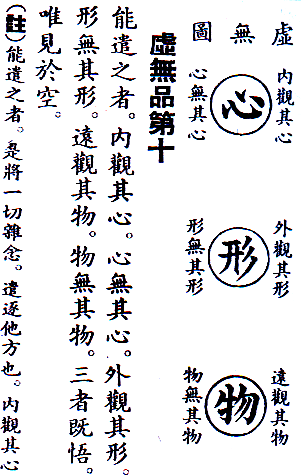 虛無圖
內觀其心
心
心無其心
外觀其形
形
形無其形
遠觀其物
物
物無其物
虛無品第十
能遣之者。內觀其心。心無其心。外觀其形。
形無其形。遠觀其物。物無其物。三者既悟。
唯見於空。
(註)能遣之者。是將一切雜念。遣逐他方也。內觀其心